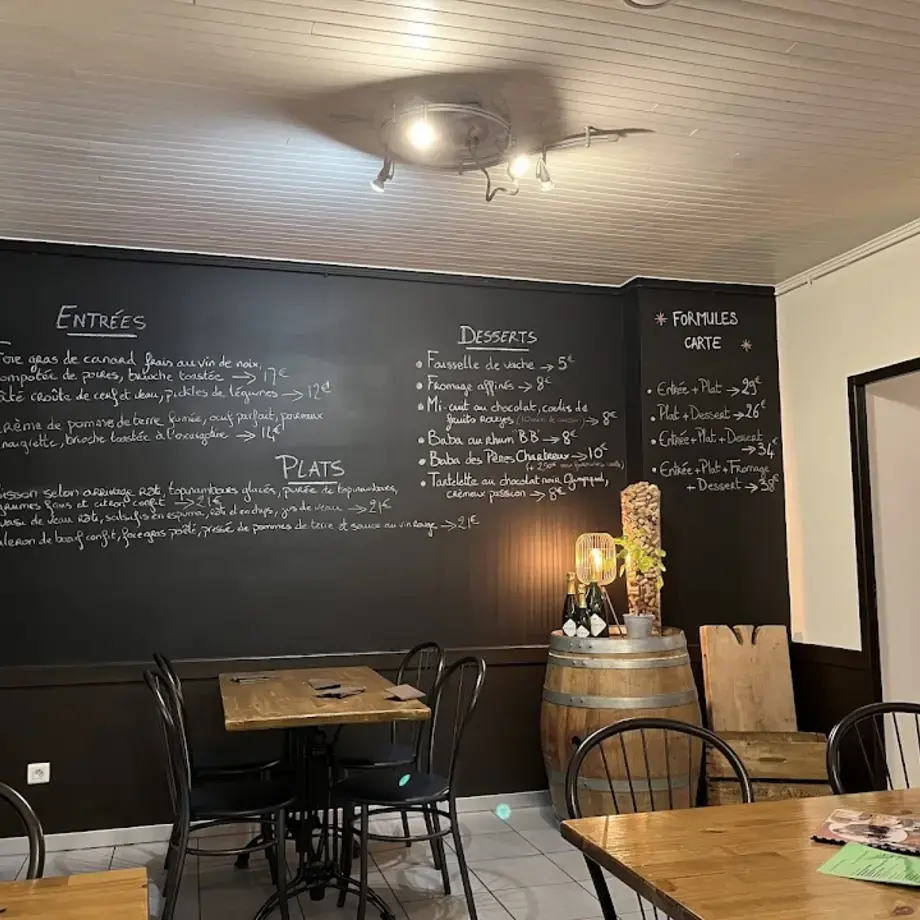 ENTRÉES
Foie gras de canard frais au vin de noix,
compotée de poires, brioche toastée → 17€
Pâté croûte de cerf et veau, pickles de légumes → 12€
crème de pomme de terre fumée, oeuf parfait, poireaux
vinaigrette, brioche toastée à l'
→ 14€
PLATS
Poisson selon arrivage rôti, topinambours glacés, purée de topinambours,
agrumes frais et citron confit → 21€
Quasi de veau rôti, salsifis en espuma, rôti et en chips, jus de veau → 21€
Paleron de boeuf confit, foie gras poêlé, pressé de pommes de terre et sauce au vin rouge → 21€
DESSERTS
• Faisselle de vache → 5€
• Fromage affinés → 8€
• Mi-cuit au chocolat, coulis de
fruits rouges (10 min de cuisson) → 8€
• Baba au rhum B.B → 8€
• Baba des Pères Chartreux → 10€
• Tartelette au chocolat noir
crémeux passion → 8€
* FORMULES
CARTE *
• Entrée + Plat → 29€
• Plat + Dessert → 26€
• Entrée + Plat + Dessert
→ 34€
• Entrée + Plat + Fromage
+ Dessert → 38€